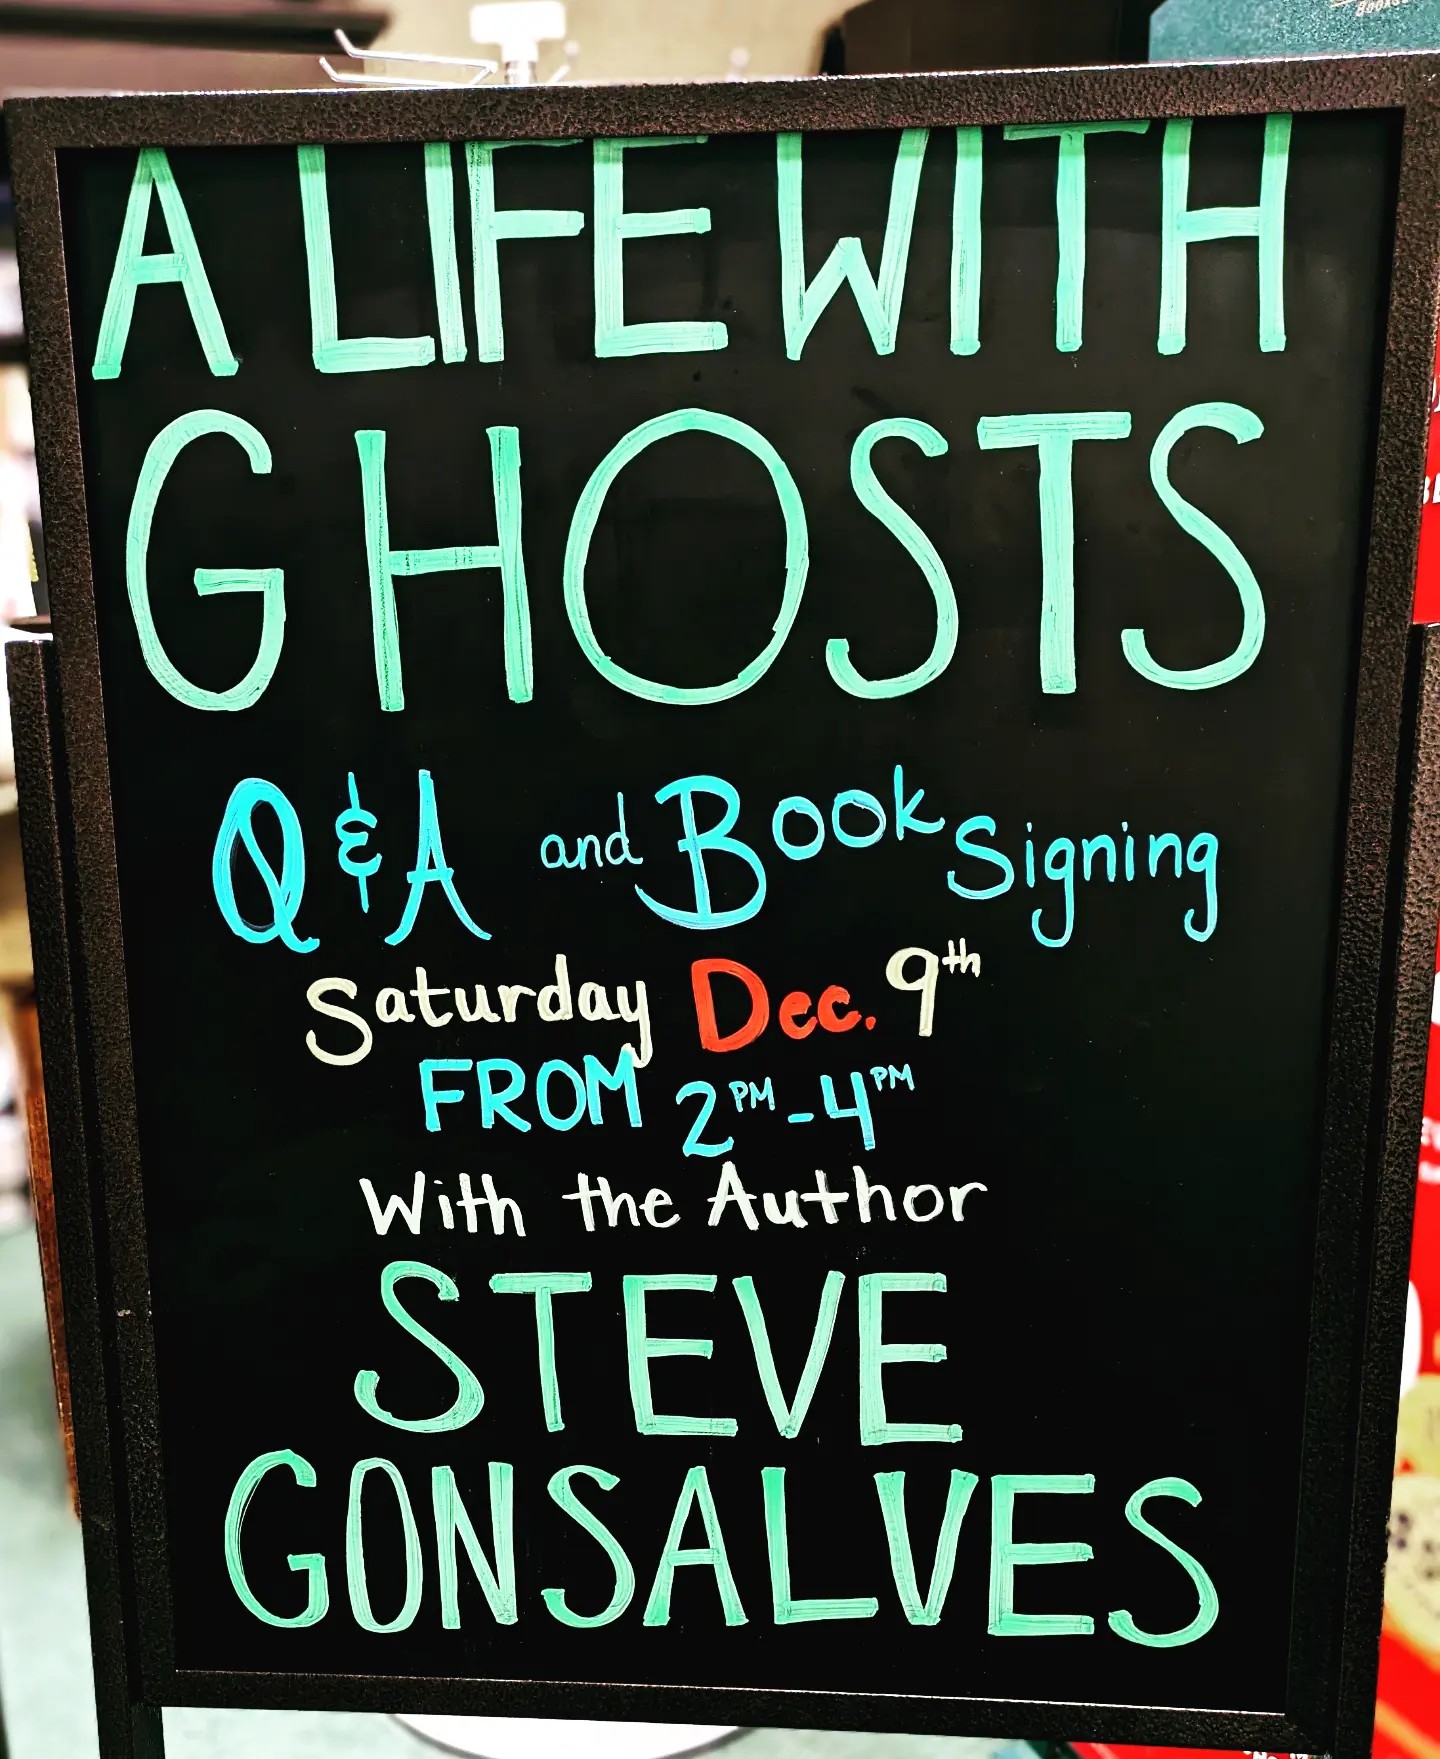 A LIFE WITH
GHOSTS
Q & A and Book Signing
Saturday Dec. 9th
FROM 2PM - 4PM
With the Author
STEVE
GONSALVES